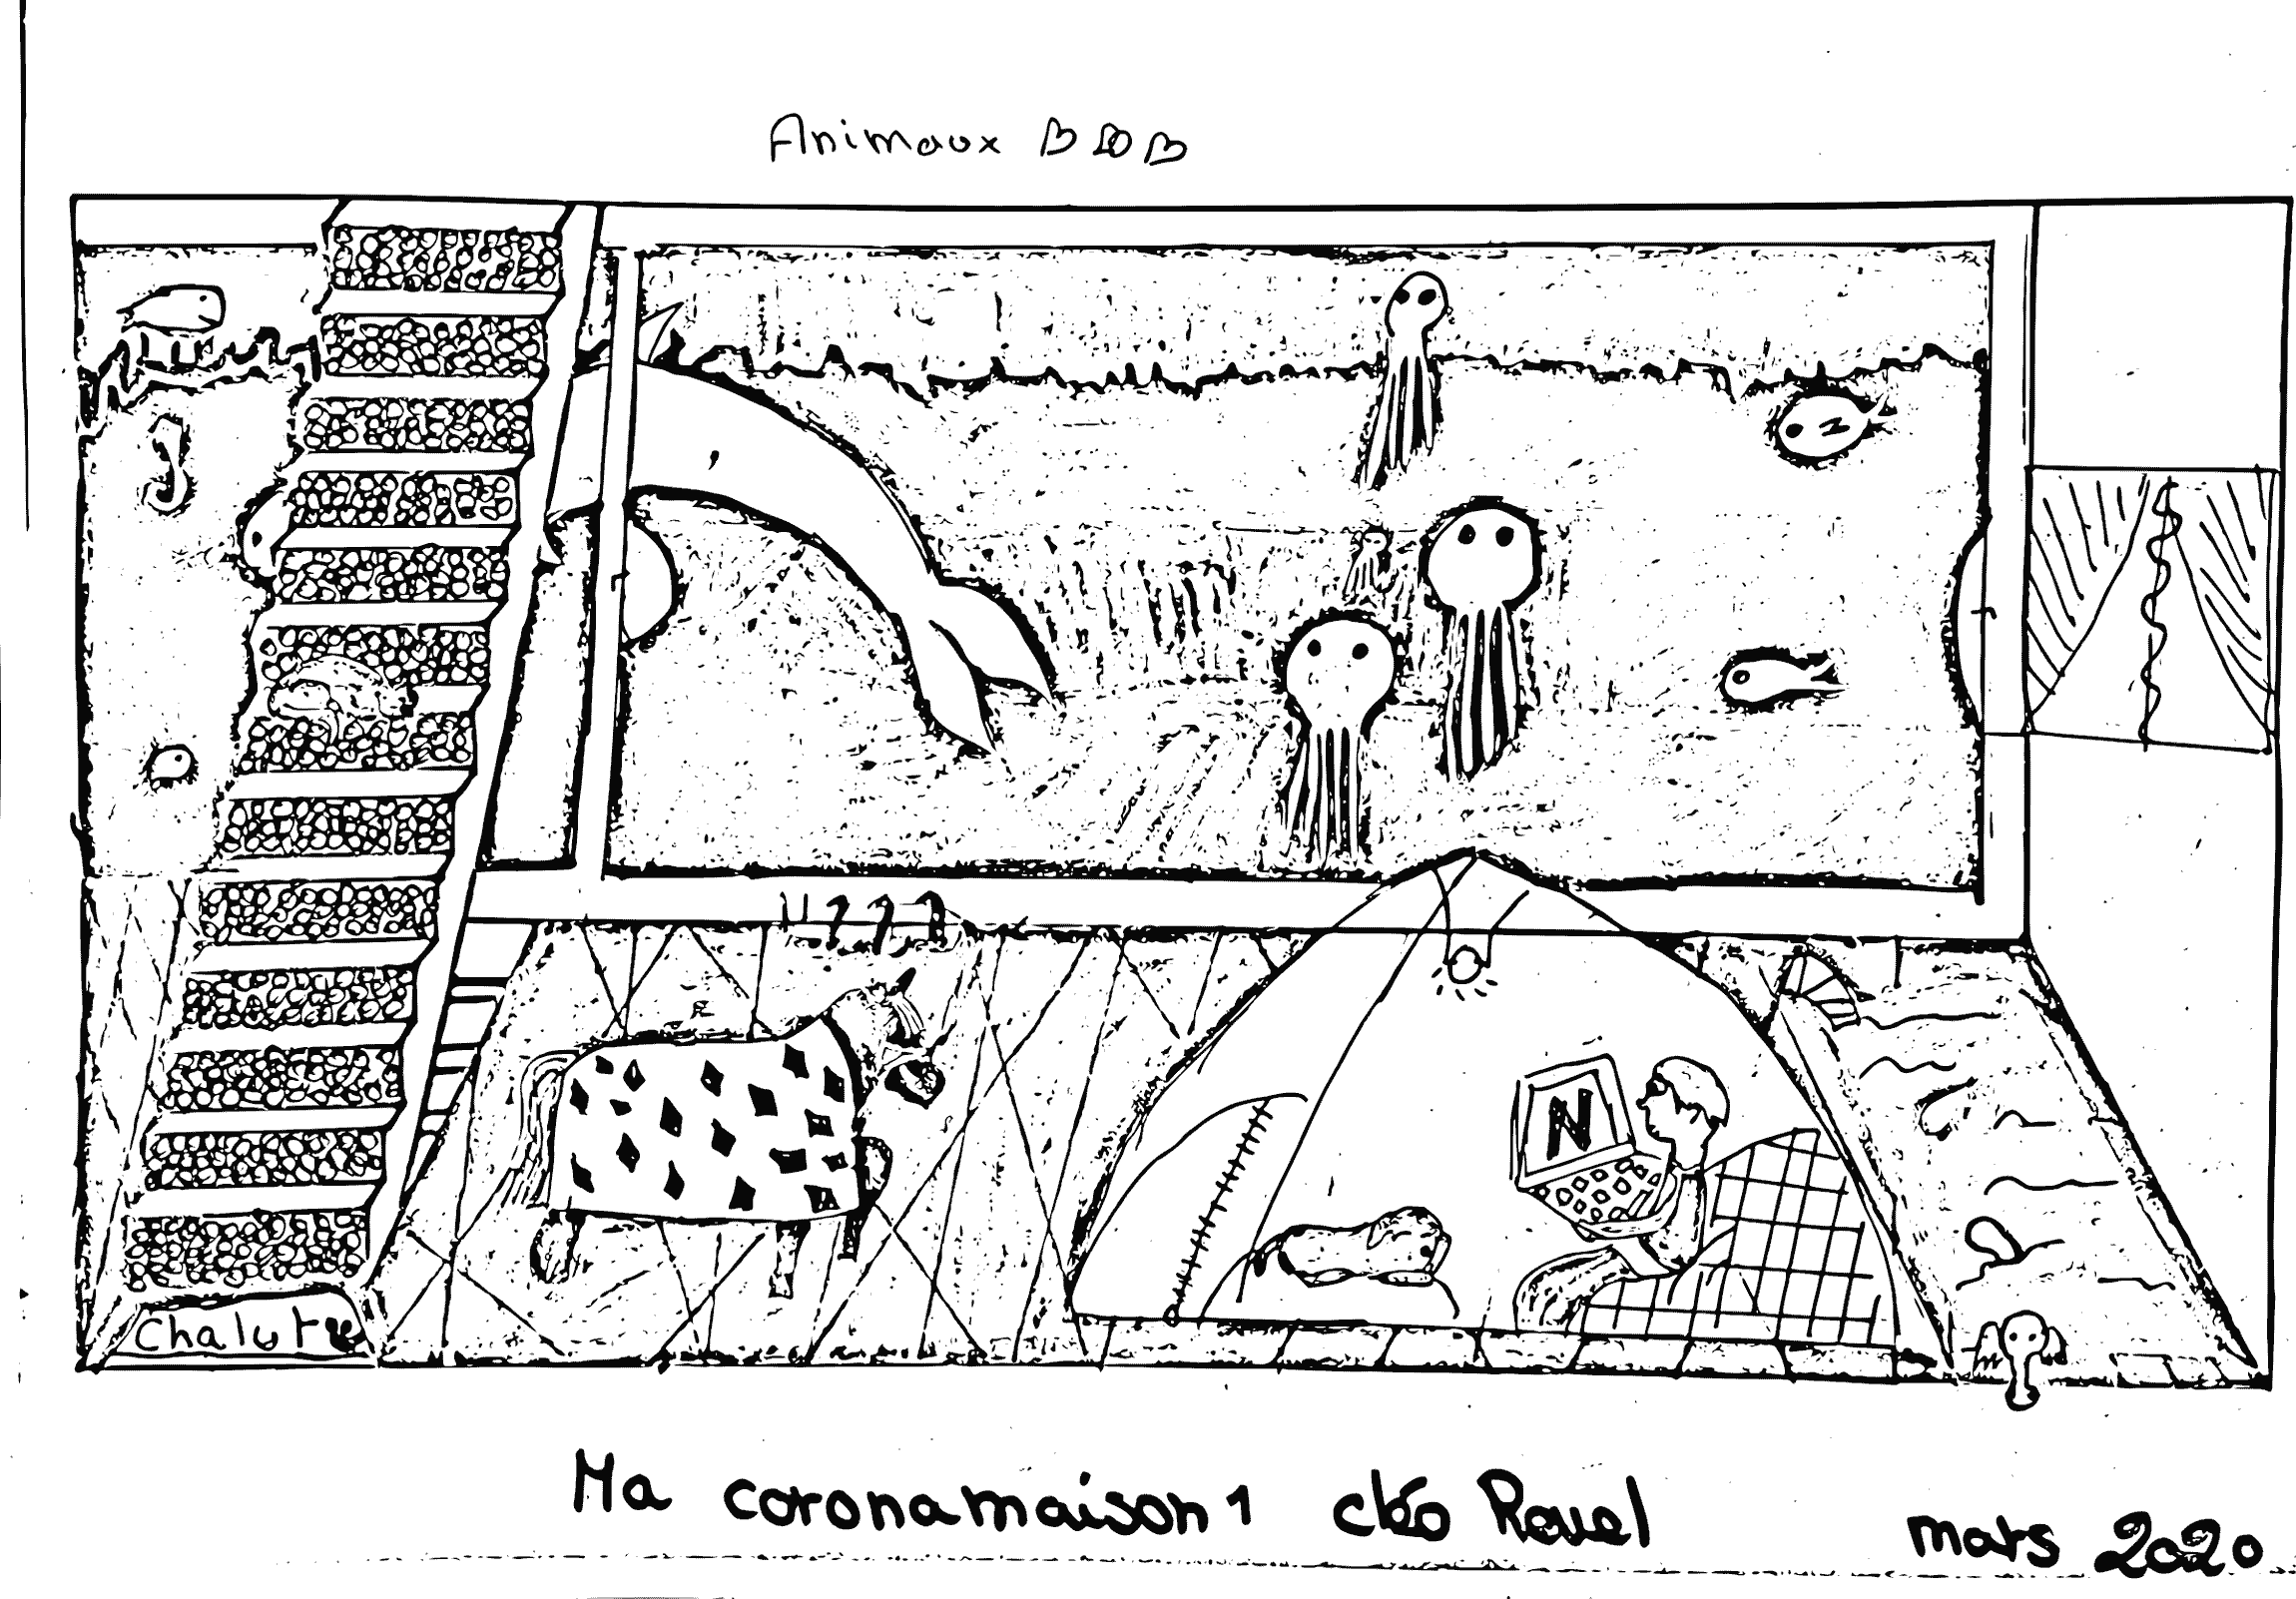 Animaux
N
Chalut
Ma coronamaison 1 cléo Revel
mars 2020